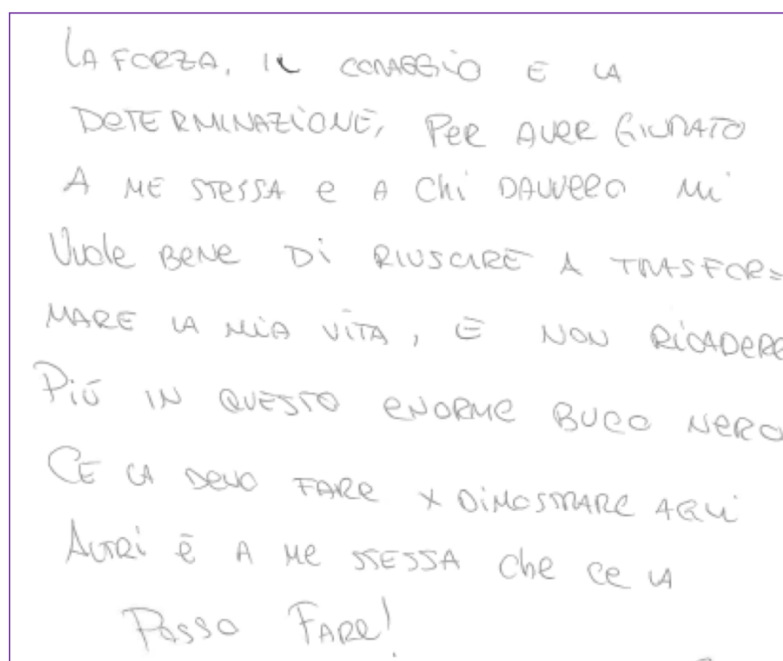 LA FORZA, IL CORAGGIO E LA
DETERMINAZIONE, PER AVER GIURATO
A ME STESSA e A Chi DAVVERO Mi
Vuole BENE Di RIUSCIRE A TRASFOR=
MARE LA MIA VITA, E NON RICADERE
PIÙ IN QUESTO ENORME BUCO NERO
CE LA DEVO FARE X DIMOSTRARE AGLI
ALTRI E A ME STESSA Che CE LA
POSSO FARE!